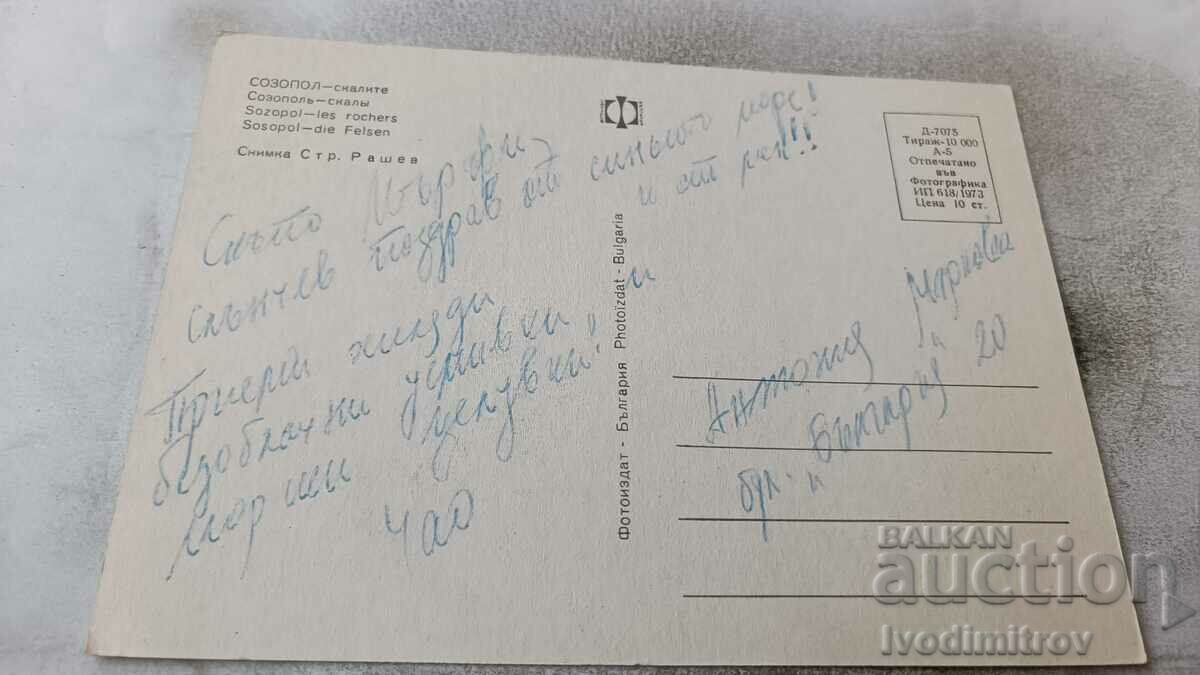 СОЗОПОЛ—скалите
Созополь—скалы
Sozopol—les rochers
Sosopol—die Felsen
Снимка Стр. Рашев
Д-7078
Тираж-10 000
А-5
Отпечатано
във
Фотографика
ИП 618/1973
Цена 10 ст.
Скъпо Мърфи,
слънчев поздрав от синьото море!
и от мен!!
Приеми хиляди
безоблачни усмивки и
морски целувки!
Чао
Фотоиздат - България Photoizdat - Bulgaria
Антония Маркова
бул. "България" 20
BALKAN
auction
Ivodimitrov